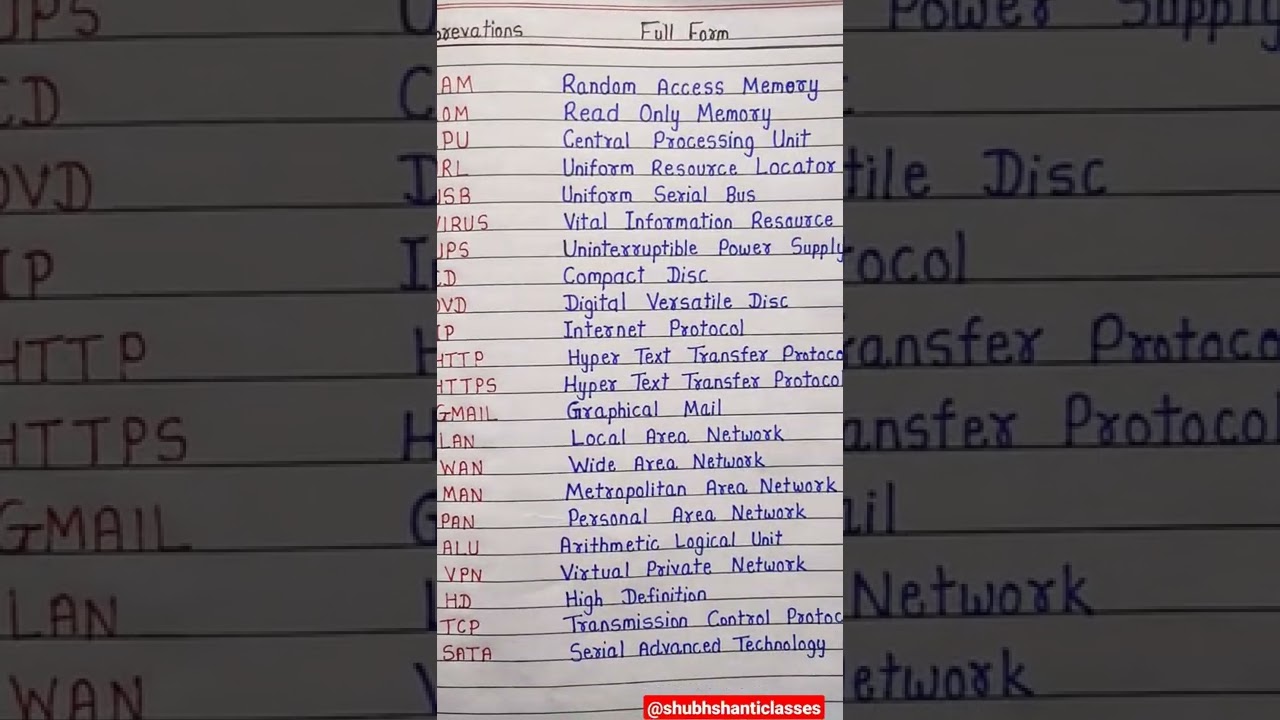 brevations Full Form
AM Random Access Memory
OM Read Only Memory
PU Central Processing Unit
RL Uniform Resource Locator
USB Uniform Serial Bus
VIRUS Vital Information Resource
UPS Uninterruptible Power Supply
CD Compact Disc
DVD Digital Versatile Disc
IP Internet Protocol
HTTP Hyper Text Transfer Protoco
HTTPS Hyper Text Transfer Protocol
GMAIL Graphical Mail
LAN Local Area Network
WAN Wide Area Network
MAN Metropolitan Area Network
PAN Personal Area Network
ALU Arithmetic Logical Unit
VPN Virtual Private Network
HD High Definition
TCP Transmission Control Protoc
SATA Serial Advanced Technology
@shubhshanticlasses
UPS U Power Supply
CD C
DVD D tile Disc
IP I ocol
HTTP H ansfer Protoco
HTTPS H ansfer Protocol
GMAIL G ail
LAN Network
WAN etwork